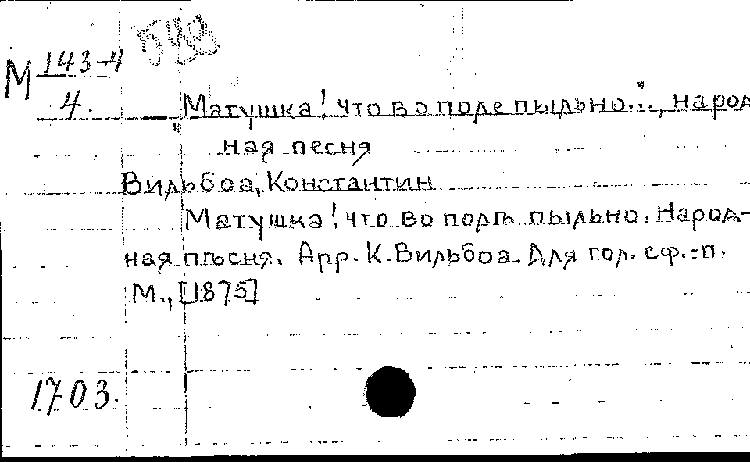 М 143-4
4.
"Матушка! что во поле пыльно...", народ
ная песня
Вильбоа, Константин
Матушка! что во полѣ пыльно. Народ-
ная пѣсня. Арр. К. Вильбоа. Для гол. с ф.-п.
М., [1875]
1703.